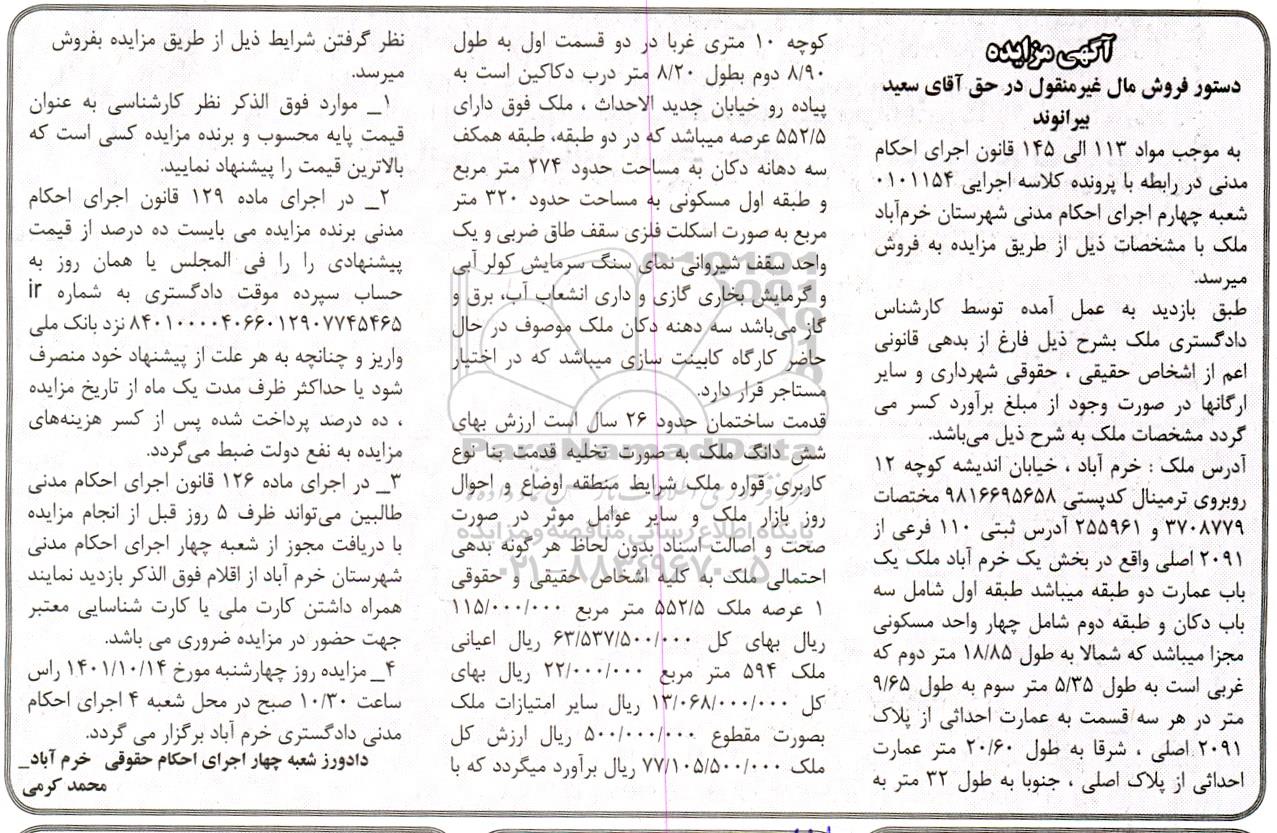 آگهی مزایده
دستور فروش مال غیرمنقول در حق آقای سعید
بیرانوند
به موجب مواد ۱۱۳ الی ۱۴۵ قانون اجرای احکام
مدنی در رابطه با پرونده کلاسه اجرایی ۰۱۰۱۱۵۴
شعبه چهارم اجرای احکام مدنی شهرستان خرم‌آباد
ملک با مشخصات ذیل از طریق مزایده به فروش
میرسد.
طبق بازدید به عمل آمده توسط کارشناس
دادگستری ملک بشرح ذیل فارغ از بدهی قانونی
اعم از اشخاص حقیقی ، حقوقی شهرداری و سایر
ارگانها در صورت وجود از مبلغ برآورد کسر می
گردد مشخصات ملک به شرح ذیل می‌باشد.
آدرس ملک : خرم آباد ، خیابان اندیشه کوچه ۱۲
روبروی ترمینال کدپستی ۹۸۱۶۶۹۵۶۵۸ مختصات
۳۷۰۸۷۷۹ و ۲۵۵۹۶۱ آدرس ثبتی ۱۱۰ فرعی از
۲۰۹۱ اصلی واقع در بخش یک خرم آباد ملک یک
باب عمارت دو طبقه میباشد طبقه اول شامل سه
باب دکان و طبقه دوم شامل چهار واحد مسکونی
مجزا میباشد که شمالا به طول ۱۸/۸۵ متر دوم که
غربی است به طول ۵/۳۵ متر سوم به طول ۹/۶۵
متر در هر سه قسمت به عمارت احداثی از پلاک
۲۰۹۱ اصلی ، شرقا به طول ۲۰/۶۰ متر عمارت
احداثی از پلاک اصلی ، جنوبا به طول ۳۲ متر به
کوچه ۱۰ متری غربا در دو قسمت اول به طول
۸/۹۰ دوم بطول ۸/۲۰ متر درب دکاکین است به
پیاده رو خیابان جدید الاحداث ، ملک فوق دارای
۵۵۲/۵ عرصه میباشد که در دو طبقه، طبقه همکف
سه دهانه دکان به مساحت حدود ۲۷۴ متر مربع
و طبقه اول مسکونی به مساحت حدود ۳۲۰ متر
مربع به صورت اسکلت فلزی سقف طاق ضربی و یک
واحد سقف شیروانی نمای سنگ سرمایش کولر آبی
و گرمایش بخاری گازی و داری انشعاب آب، برق و
گاز می‌باشد سه دهنه دکان ملک موصوف در حال
حاضر کارگاه کابینت سازی میباشد که در اختیار
مستاجر قرار دارد.
قدمت ساختمان حدود ۲۶ سال است ارزش بهای
شش دانگ ملک به صورت تخلیه قدمت بنا نوع
کاربری قواره ملک شرایط منطقه اوضاع و احوال
روز بازار ملک و سایر عوامل موثر در صورت
صحت و اصالت اسناد بدون لحاظ هر گونه بدهی
احتمالی ملک به کلیه اشخاص حقیقی و حقوقی
۱ عرصه ملک ۵۵۲/۵ متر مربع ۱۱۵/۰۰۰/۰۰۰
ریال بهای کل ۶۳/۵۳۷/۵۰۰/۰۰۰ ریال اعیانی
ملک ۵۹۴ متر مربع ۲۲/۰۰۰/۰۰۰ ریال بهای
کل ۱۳/۰۶۸/۰۰۰/۰۰۰ ریال سایر امتیازات ملک
بصورت مقطوع ۵۰۰/۰۰۰/۰۰۰ ریال ارزش کل
ملک ۷۷/۱۰۵/۵۰۰/۰۰۰ ریال برآورد میگردد که با
نظر گرفتن شرایط ذیل از طریق مزایده بفروش
میرسد.
۱_ موارد فوق الذکر نظر کارشناسی به عنوان
قیمت پایه محسوب و برنده مزایده کسی است که
بالاترین قیمت را پیشنهاد نمایید.
۲_ در اجرای ماده ۱۲۹ قانون اجرای احکام
مدنی برنده مزایده می بایست ده درصد از قیمت
پیشنهادی را را فی المجلس یا همان روز به
حساب سپرده موقت دادگستری به شماره ir
۸۴۰۱۰۰۰۰۴۰۶۶۰۱۲۹۰۷۷۴۵۴۶۵ نزد بانک ملی
واریز و چنانچه به هر علت از پیشنهاد خود منصرف
شود یا حداکثر ظرف مدت یک ماه از تاریخ مزایده
، ده درصد پرداخت شده پس از کسر هزینه‌های
مزایده به نفع دولت ضبط می‌گردد.
۳_ در اجرای ماده ۱۲۶ قانون اجرای احکام مدنی
طالبین می‌تواند ظرف ۵ روز قبل از انجام مزایده
با دریافت مجوز از شعبه چهار اجرای احکام مدنی
شهرستان خرم آباد از اقلام فوق الذکر بازدید نمایند
همراه داشتن کارت ملی یا کارت شناسایی معتبر
جهت حضور در مزایده ضروری می باشد.
۴_ مزایده روز چهارشنبه مورخ ۱۴۰۱/۱۰/۱۴ راس
ساعت ۱۰/۳۰ صبح در محل شعبه ۴ اجرای احکام
مدنی دادگستری خرم آباد برگزار می گردد.
دادورز شعبه چهار اجرای احکام حقوقی خرم آباد_
محمد کرمی
ParsNamadData
پایگاه اطلاع رسانی مناقصه و مزایده
۰۲۱-۸۸۳۴۹۶۷۰-۵